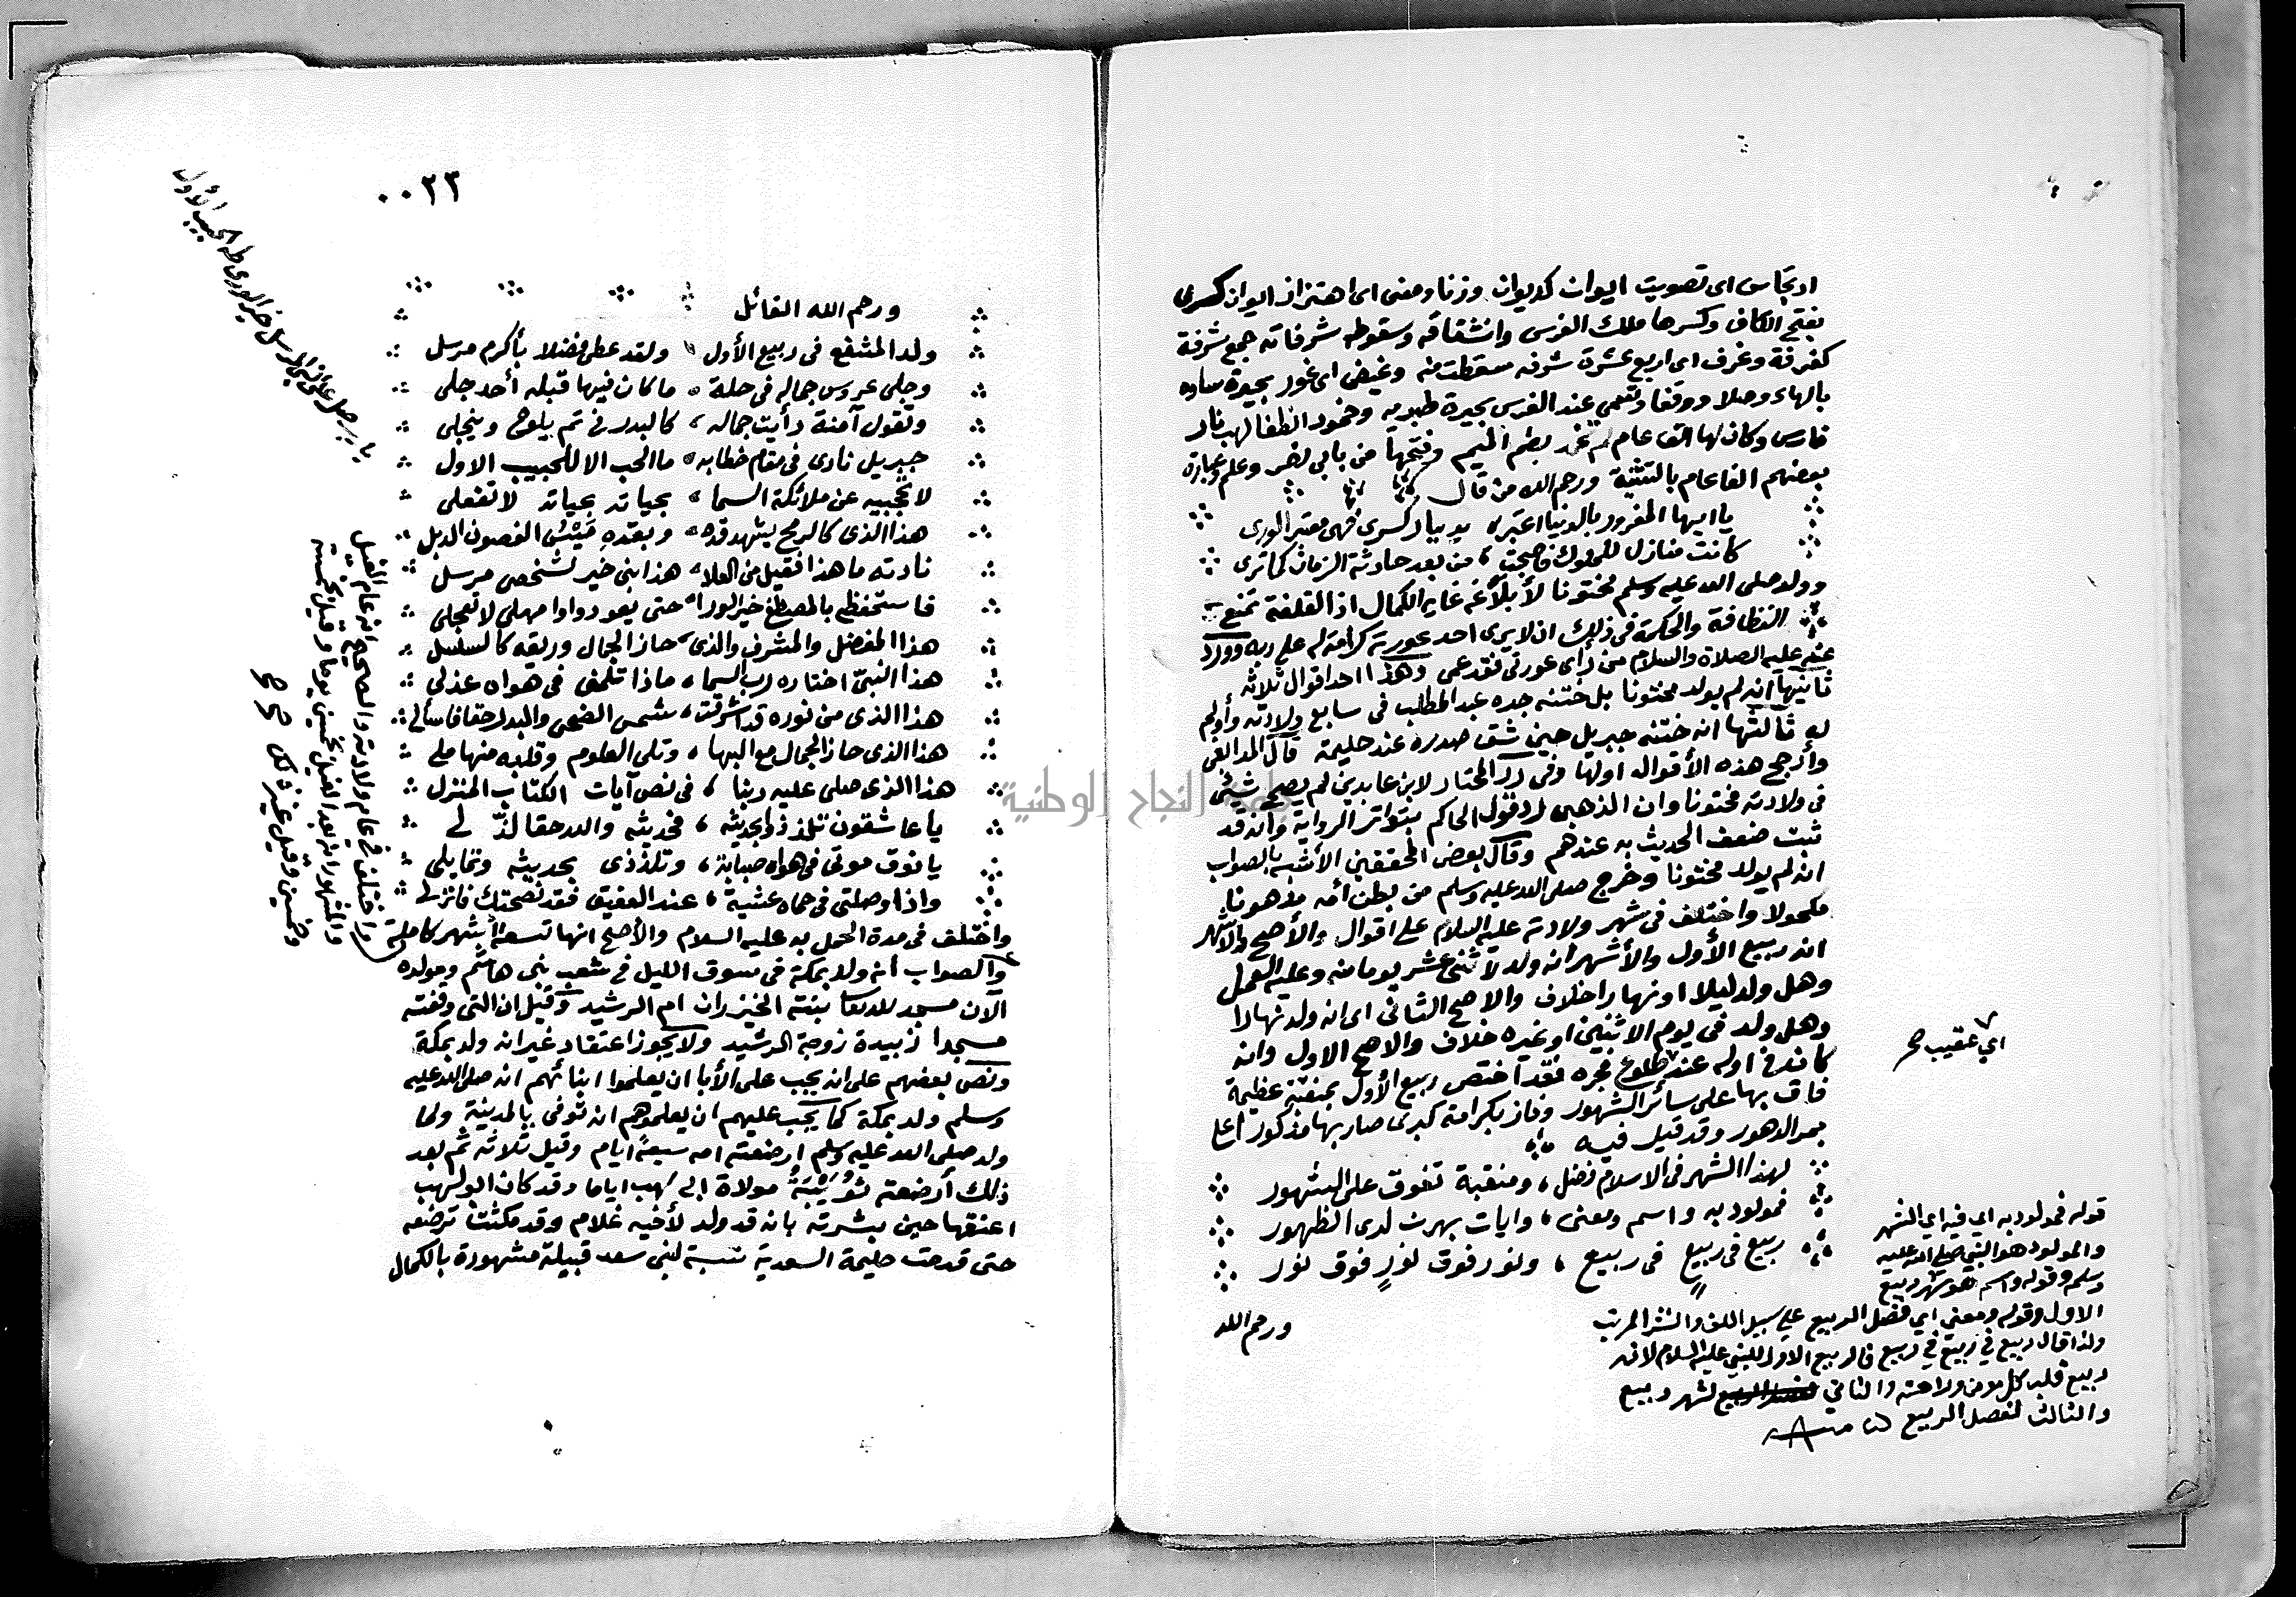 ارتجاس اى تصويت ايوان كديوان وزنا ومعنى اى اهتزاز ايوان كسرى
بفتح الكاف وكسرها ملك الفرس وانشقاقه وسقوط شرفاته جمع شرفة
كغرفة وغرف اى اربع عشرة شرفه سقطت منه وغيض اى غور بحيرة ساوه
بالهاء وصلا ووقفا وتسمى عند الفرس بحيرة طبرية وخمود انطفا لهب نار
فارس وكان لها الف عام لم تخمد بضم الميم وفتحها من بابي نصر وعلم وعبارة
بعضهم الفا عام بالتثنية ورحم الله من قال
يا ايها المغرور بالدنيا اعتبر، بديار كسرى فهى معتبر الورى
كانت منازل للملوك فاصبحت، من بعد حادثة الزمان كما ترى
وولد صلى الله عليه وسلم مختونا لأبلاغه غاية الكمال اذ القلفة تمنع
النظافة والحكمة فى ذلك ان لا يرى احد عورته كرامة له على ربه وورد
عنه عليه الصلاة والسلام من رأى عورتى فقد عمى وهذا احد اقوال ثلاثه
ثانيها انه لم يولد مختونا بل ختنه جده عبد المطلب فى سابع ولادته وأولم
له ثالثها انه ختنه جبريل حين شق صدره عند حليمة قال المدابغى
وأرجح هذه الأقوال اولها وفى رد المحتار لابن عابدين لم يصح شيئ
فى ولادته مختونا وان الذهبى رد قول الحاكم بتواتر الرواية وانه قد
ثبت ضعف الحديث به عندهم وقال بعض المحققين الأشبه بالصواب
انه لم يولد مختونا وخرج صلى الله عليه وسلم من بطن أمه مدهونا
مكحولا واختلف فى شهر ولادته عليه السلام على اقوال والأصح والاشهر
انه ربيع الأول والأشهر انه ولد لاثنى عشر يوما منه وعليه العمل
وهل ولد ليلا او نهارا خلاف والاصح الثانى اى انه ولد نهارا
وهل ولد فى يوم الاثنين او غيره خلاف والاصح الاول وانه
كان فى اوله عند طلوع فجره فقد اختص ربيع الأول بمنقبة عظيمة
فاق بها على سائر الشهور وفاز بكرامة كبرى صار بها مذكورا على
ممر الدهور وقد قيل فيه
لهذا الشهر فى الاسلام فضل، ومنقبة تفوق على الشهور
فمولود به واسم ومعنى، وايات بهرن لدى الظهور
ربيع فى ربيع فى ربيع، ونور فوق نور فوق نور
ورحم الله
اي عقيب صح
قوله فمولود به اي فيه اي الشهر
والمولود هو النبي صلى الله عليه
وسلم وقوله واسم هو شهر ربيع
الاول وقوله ومعني اي فضل الربيع علي سبيل اللف والنشر المرتب
ولذا قال ربيع في ربيع في ربيع فالربيع الاول للنبي عليه السلام لانه
ربيع قلب كل مومن والثاني لشهر ربيع
والثالث لفصل الربيع
٠٠٢٢
ورحم الله القائل
ولد المشفع فى ربيع الأول، ولقد عطى فضلا بأكرم مرسل
وجلى عروس جماله فى حلة، ما كان فيها قبله أحد جلى
وتقول آمنة رأيت جماله، كالبدر فى تم يلوح وينجلى
جبريل نادى فى مقام خطابه، ما الحب الا للحبيب الاول
لا تحجبيه عن ملائكة السما، بحياته بحياته لا تفعلى
هذا الذى كالرمح يشهد قده، وبقده ميس الغصون الذبل
نادته ما هذا فقيل من العلا، هذا بنى خير شخص مرسل
فاستحفظى بالمصطفى خير الورا، حتى يعود وا امهلى لا تعجلى
هذا المفضل والمشرف والذى، حاز الجمال وريقه كالسلسل
هذا النبيّ اختاره رب السما، ماذا تلمنى فى هواه عذلى
هذا الذى من نوره قد اشرقت، شمس الضحى والبدر حقا فاسألى
هذا الذى حاز الجمال مع البها، وتلى العلوم وقلبه منها ملي
هذا الذى صلى عليه ربنا، فى نص آيات الكتاب المنزل
يا عاشقون تلذذوا بحديثه، فحديثه والله حقا لذّ لي
يا نوق موتى فى هواه صبابة، وتلذذى بحديثه وتمايلى
واذا وصلتى فى حماه عشية، عند العقيق فقد نصحتك فانزلى
واختلف فى مدة الحمل به عليه السلام والأصح انها تسعة أشهر كاملة
والصواب أنه ولد بمكة فى سوق الليل فى شعب بنى هاشم ومولده
الآن مسجد لله تعا بنته الخيزران ام الرشيد وقيل ان التى وقفته
مسجدا زبيدة زوجة الرشيد ولا يجوز اعتقاد غير انه ولد بمكة
ونص بعضهم على انه يجب على الأبا ان يعلموا ابنائهم انه صلى الله عليه
وسلم ولد بمكة كما يجب عليهم ان يعلموهم انه توفى بالمدينة ولما
ولد صلى الله عليه وسلم ارضعته امه سبعة ايام وقيل ثلاثه ثم بعد
ذلك أرضعته ثُوَيْبَةُ مولاة ابى لهب اياما وقد كان ابو لهب
اعتقها حين بشرته بانه قد ولد لأخيه غلام وقد مكثت ترضعه
حتى قدمت حليمة السعدية نسبة لبنى سعد قبيلة مشهورة بالكمال
يا رب صل على النبى المرسل خير الورى طه الحبيب الأول
واختلف في عام ولادته والصحيح انه عام الفيل
والمشهور انه بعد الفيل بخمسين يوما وقيل بخمسة
وخمسين وقيل غير ذلك صح صح